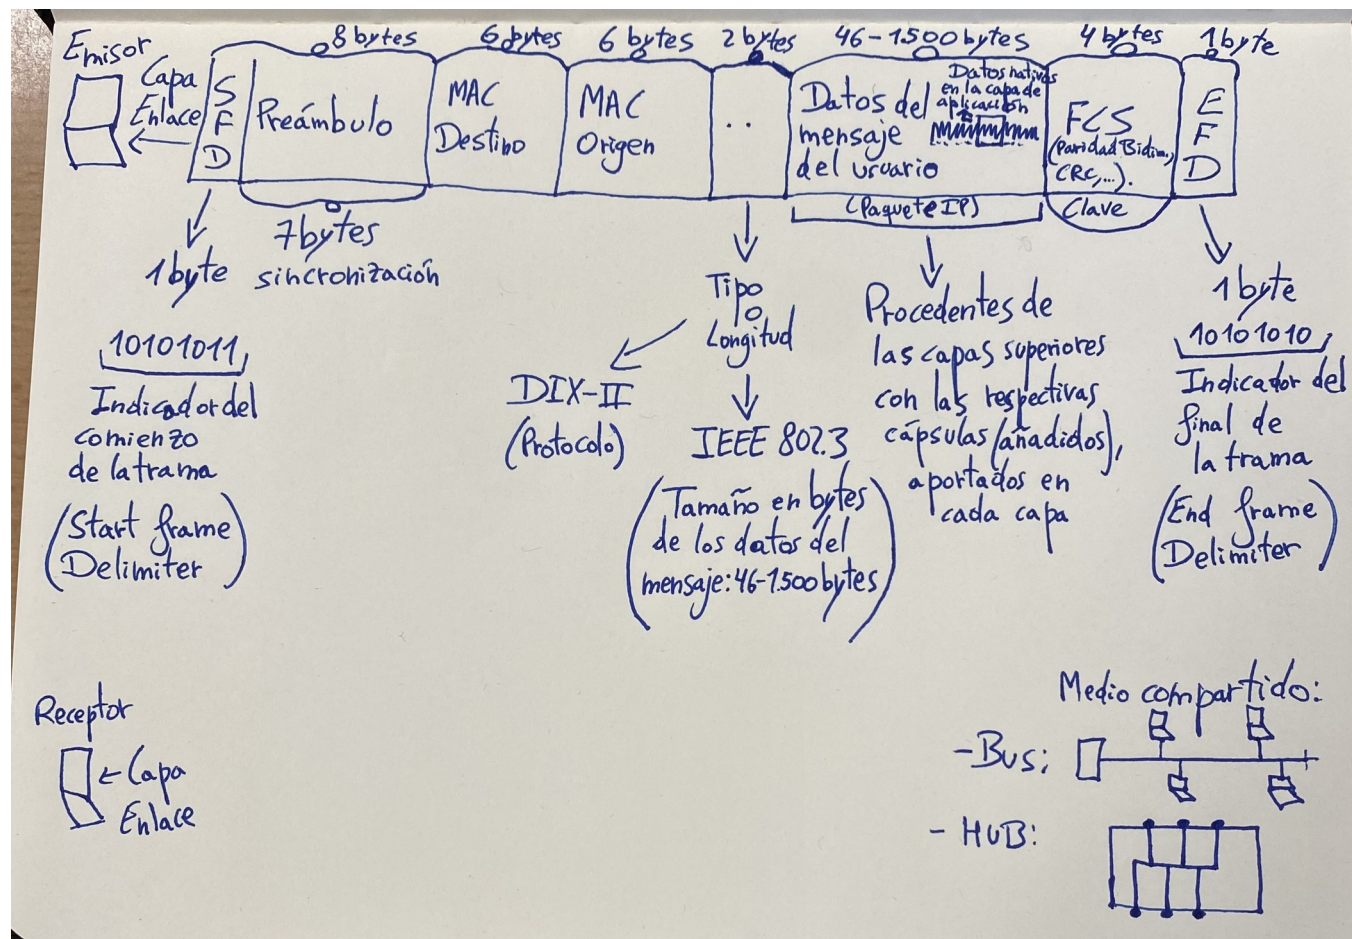 Emisor
Capa
Enlace
8 bytes
6 bytes
6 bytes
2 bytes
46-1500 bytes
4 bytes
1 byte
S
F
D
Preámbulo
MAC
Destino
MAC
Origen
..
Datos del
mensaje
del usuario
Datos nativos
en la capa de
aplicación
FCS
(Paridad Bidim.,
CRC,...).
E
F
D
7 bytes
sincronización
(Paquete IP)
Clave
1 byte
10101011,
Indicador del
comienzo
de la trama
(Start frame
Delimiter)
Tipo
o
Longitud
DIX-II
(Protocolo)
IEEE 802.3
(Tamaño en bytes
de los datos del
mensaje: 46-1.500 bytes)
Procedentes de
las capas superiores
con las respectivas
cápsulas (añadidos),
aportados en
cada capa
1 byte
10101010,
Indicador del
final de
la trama
(End frame
Delimiter)
Receptor
Capa
Enlace
Medio compartido:
-Bus:
- HUB: